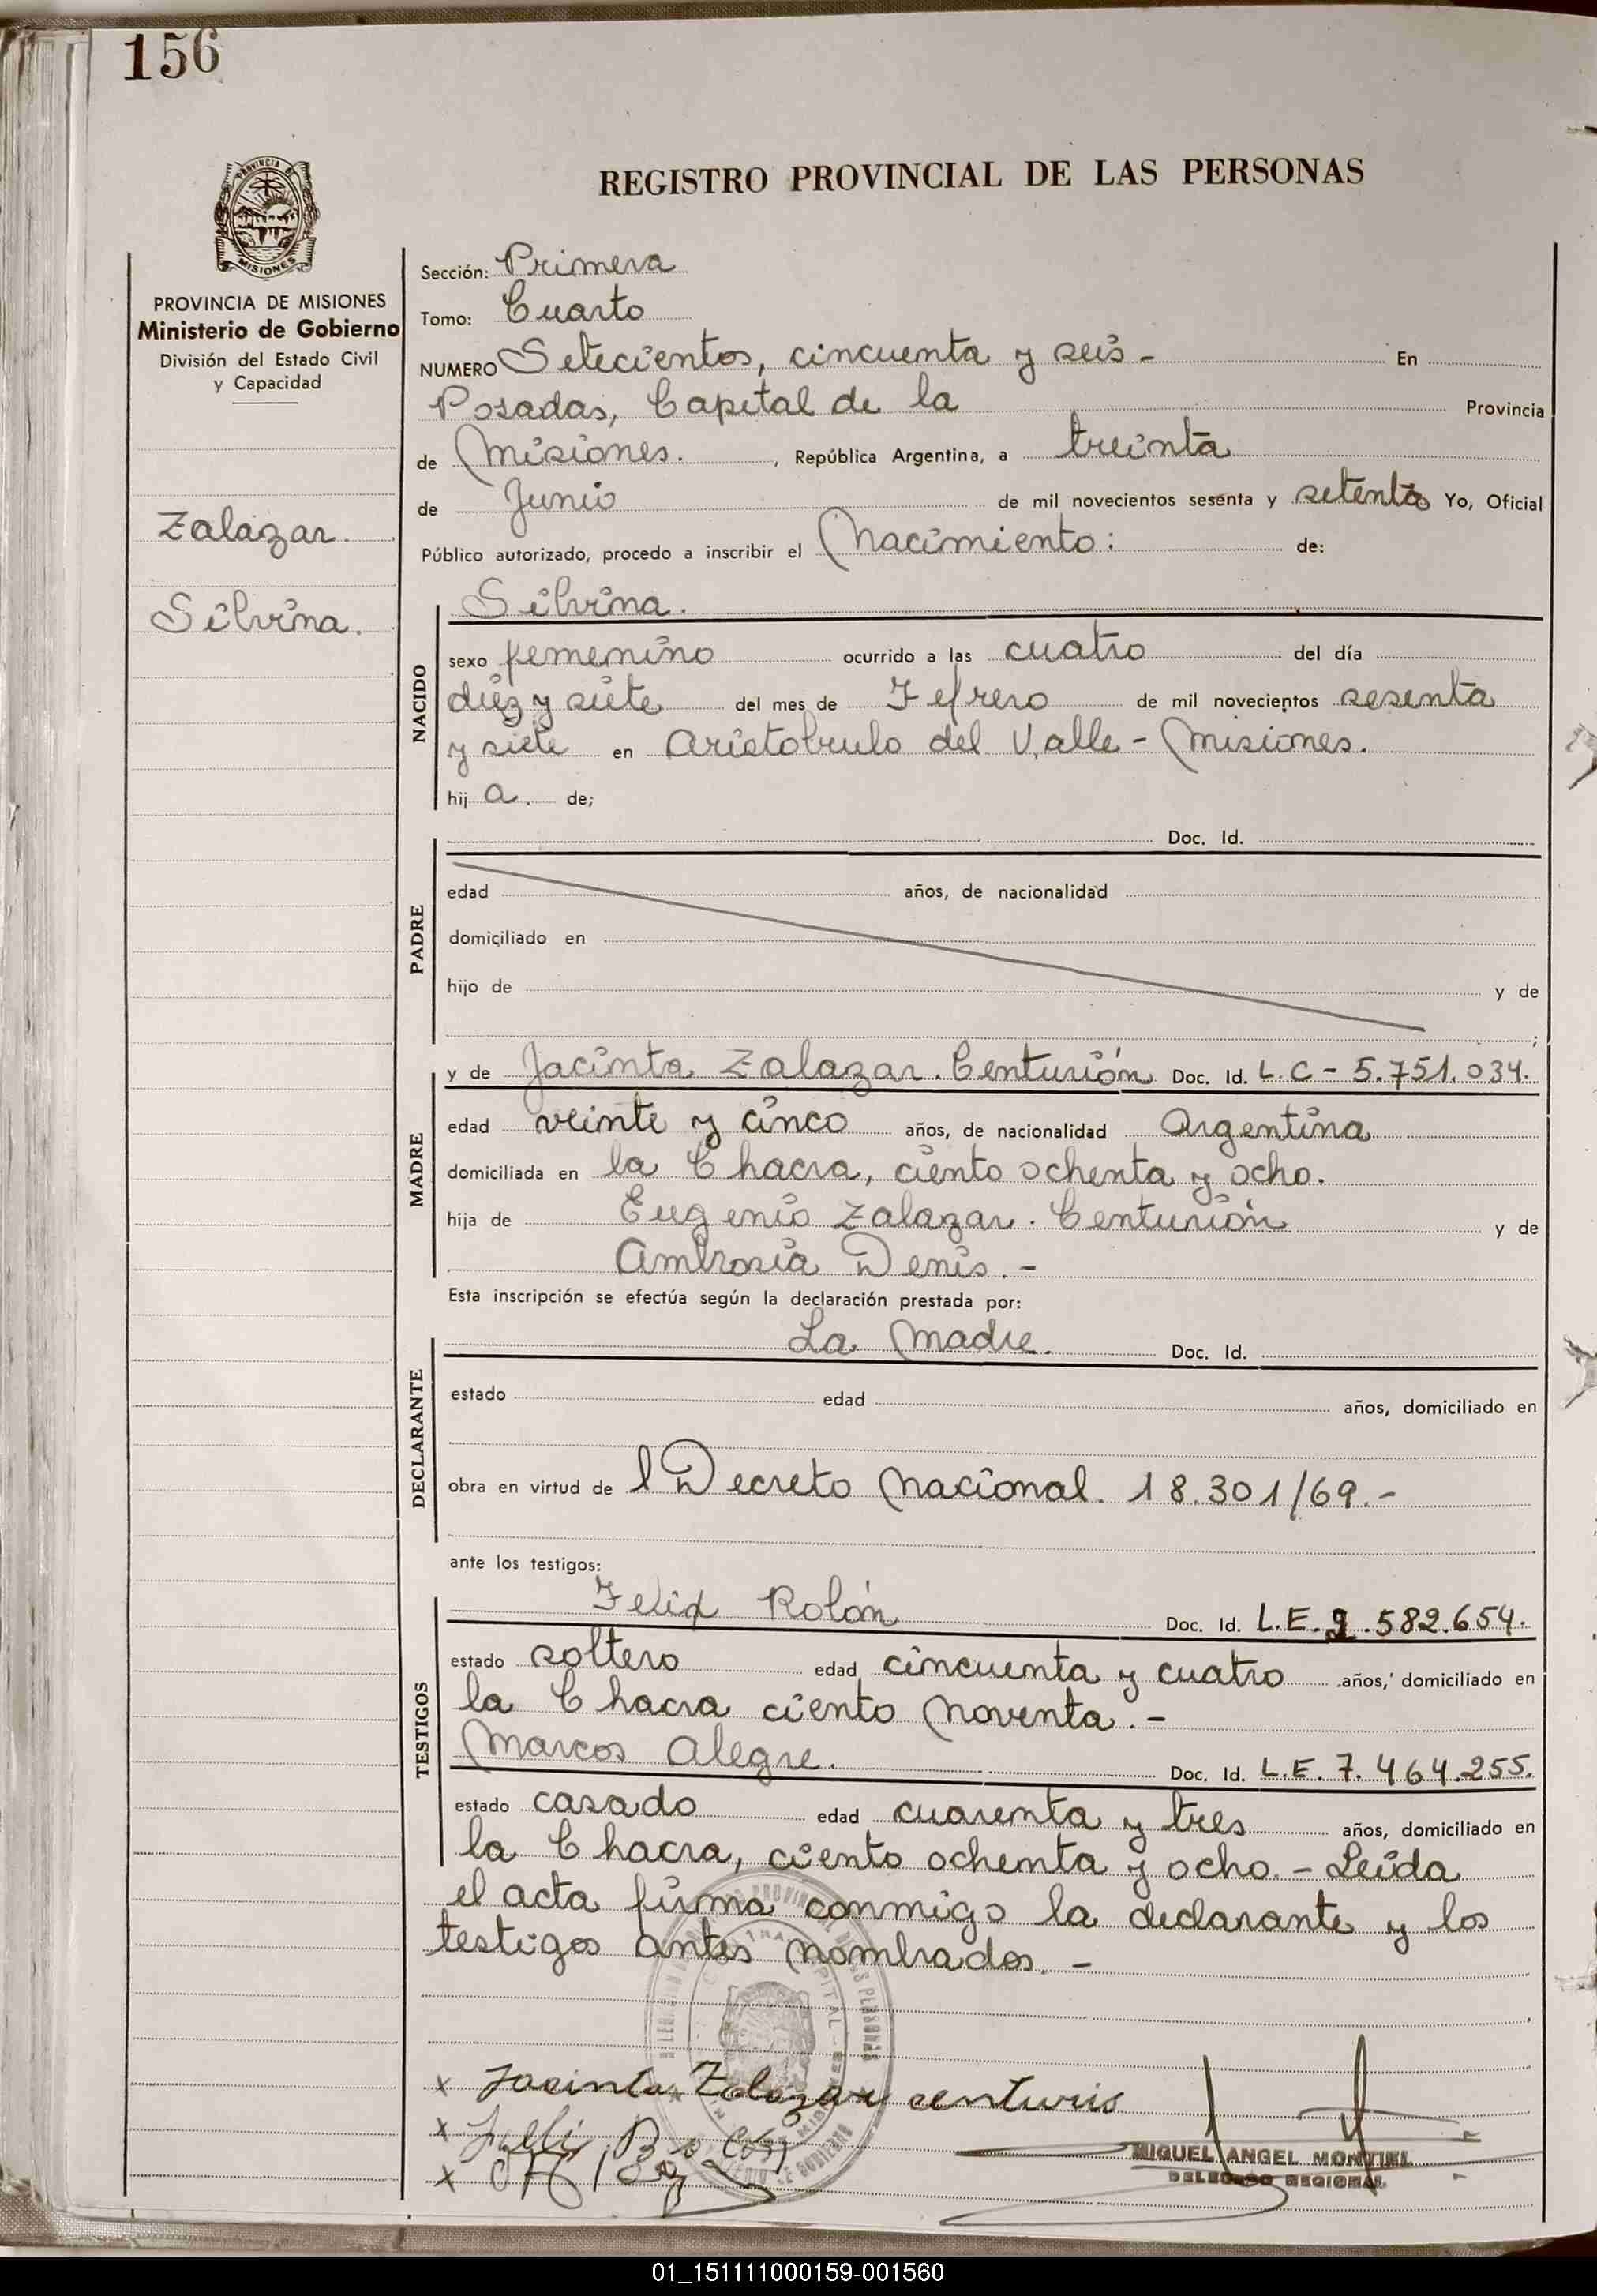 156
PROVINCIA DE
MISIONES
REGISTRO PROVINCIAL DE LAS PERSONAS
PROVINCIA DE MISIONES
Ministerio de Gobierno
División del Estado Civil
y Capacidad
Zalazar.
Silvina.
Sección: Primera
Tomo: Cuarto
NUMERO Setecientos, cincuenta y seis - En
Posadas, Capital de la Provincia
de Misiones. , República Argentina, a treinta
de Junio de mil novecientos sesenta y setenta Yo, Oficial
Público autorizado, procedo a inscribir el Nacimiento: de:
NACIDO
Silvina.
sexo femenino ocurrido a las cuatro del día
diez y siete del mes de Febrero de mil novecientos sesenta
y siete en Aristobrulo del Valle - Misiones.
hij a. de;
PADRE
Doc. Id.
edad años, de nacionalidad
domiciliado en
hijo de y de
;
MADRE
y de Jacinta Zalazar. Centurión Doc. Id. L.C - 5.751.034.
edad veinte y cinco años, de nacionalidad Argentina
domiciliada en la Chacra, ciento ochenta y ocho.
hija de Eugenio Zalazar. Centurión y de
Ambrosia Denis. -
Esta inscripción se efectúa según la declaración prestada por:
DECLARANTE
La Madre. Doc. Id.
estado edad años, domiciliado en
obra en virtud de l Decreto Nacional. 18.301/69.-
ante los testigos:
TESTIGOS
Felix Rolón Doc. Id. L.E. .582.654.
estado soltero edad cincuenta y cuatro años, domiciliado en
la Chacra ciento noventa. -
Marcos Alegre. Doc. Id. L.E. 7.464.255.
estado casado edad cuarenta y tres años, domiciliado en
la Chacra, ciento ochenta y ocho. - Leida
el acta firma conmigo la declarante y los
testigos antes nombrados. -
x Jacinta Zalazar centuris
x
x
MIGUEL ANGEL MONTIEL
DELEGADO REGIONAL
01_151111000159-001560